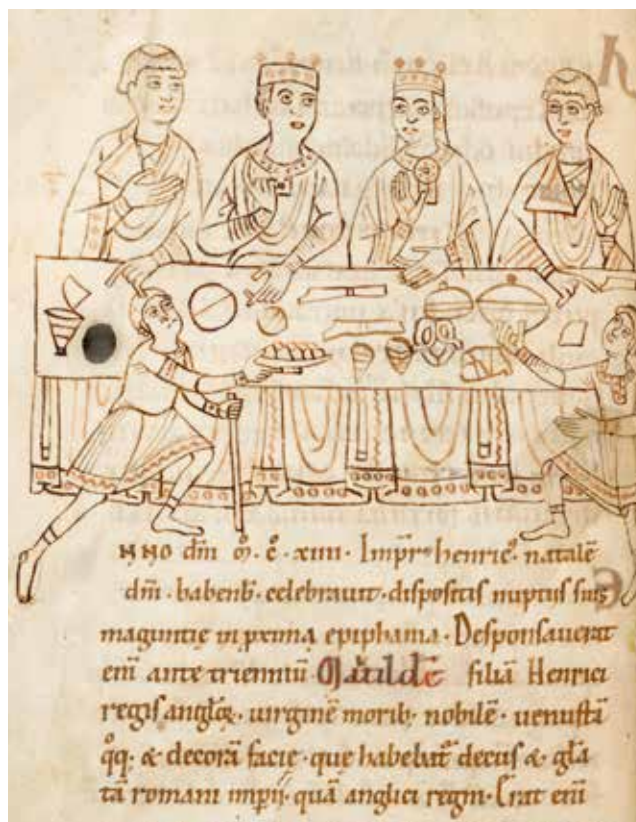 NNO dm̄ m̊. c̊. xiiii. Impr̄ henricꝰ. natalē
dm̄. babenb̄. celebrauit. dispositis nuptiis suis
magontię in pxima epiphania. Desponsauerat
eni̅ ante trienniū Matildē filiā Henrici
regis angloꝝ. uirginē morib; nobilē. uenustā
q̊q. & decorā facie. que habebat᷑ decus & gl̄a
tā romani imp̄ii. quā anglici regni. Erat eni̅